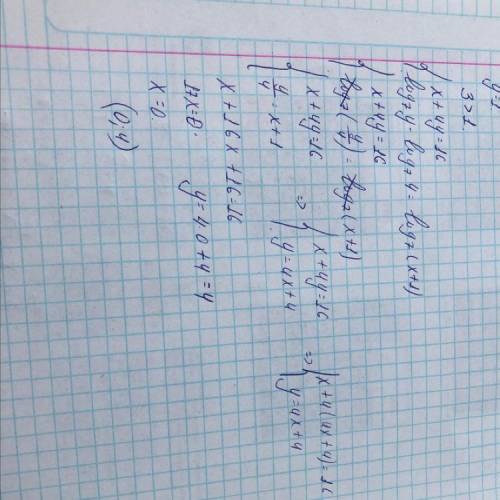 y=1
3>1.
{ x+4y=16
log₇y-log₇4=log₇(x+1)
{ x+4y=16
log₇(y/4)=log₇(x+1)
{ x+4y=16 => { x+4y=16 => { x+4(4x+4)=16
y/4=x+1 y=4x+4 y=4x+4
x+16x+16=16
17x=0. y=4·0+4=4
x=0.
(0;4)